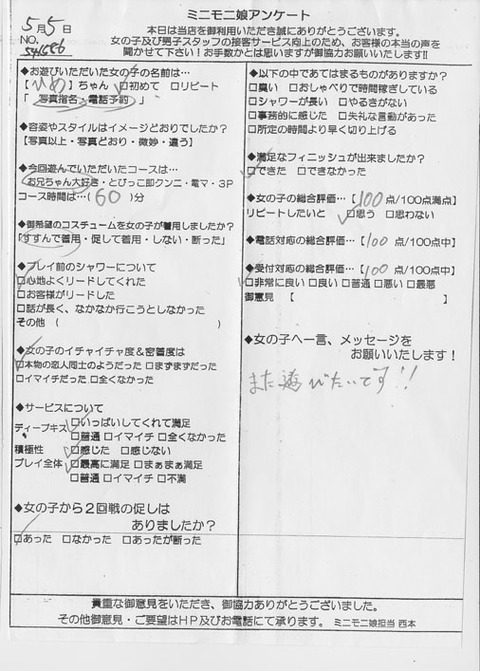 ミニモニ娘アンケート
5月5日
NO.
541686
本日は当店を御利用いただき誠にありがとうございます。
女の子及び男子スタッフの接客サービス向上のため、お客様の本当の声を
聞かせて下さい!お手数かとは思いますが御協力お願いいたします!!
◆お遊びいただいた女の子の名前は…
【ひめ】ちゃん □初めて □リピート
「 写真指名・電話予約 」
◆容姿やスタイルはイメージどおりでしたか?
【写真以上・写真どおり・微妙・違う】
◆今回遊んでいただいたコースは…
お兄ちゃん大好き・とびっこ即クンニ・電マ・3P
コース時間は…(60)分
◆御希望のコスチュームを女の子が着用しましたか?
「すすんで着用・促して着用・しない・断った」
◆プレイ前のシャワーについて
□心地よくリードしてくれた
□お客様がリードした
□話が長く、なかなか行こうとしなかった
その他 ( )
◆女の子のイチャイチャ度&密着度は
□本物の恋人同士のようだった □まずまずだった
□イマイチだった □全くなかった
◆サービスについて
ディープキス □いっぱいしてくれて満足
□普通 □イマイチ □全くなかった
積極性 □感じた □感じない
プレイ全体 □最高に満足 □まぁまぁ満足
□普通 □イマイチ □不満
◆女の子から2回戦の促しは
ありましたか?
□あった □なかった □あったが断った
◆以下の中であてはまるものがありますか?
□臭い □おしゃべりで時間稼ぎしている
□シャワーが長い □やるきがない
□事務的に感じた □失礼な言動があった
□所定の時間より早く切り上げる
◆満足なフィニッシュが出来ましたか?
□できた □できなかった
◆女の子の総合評価…【100点/100点満点】
リピートしたいと □思う □思わない
◆電話対応の総合評価…【100 点/100点中】
◆受付対応の総合評価…【100 点/100点中】
□非常に良い □良い □普通 □悪い □最悪
御意見 【 】
◆女の子へ一言、メッセージを
お願いいたします!
また遊びたいです!!
貴重な御意見をいただき、御協力ありがとうございました。
その他御意見・ご要望はHP及びお電話にて承ります。 ミニモニ娘担当 西本